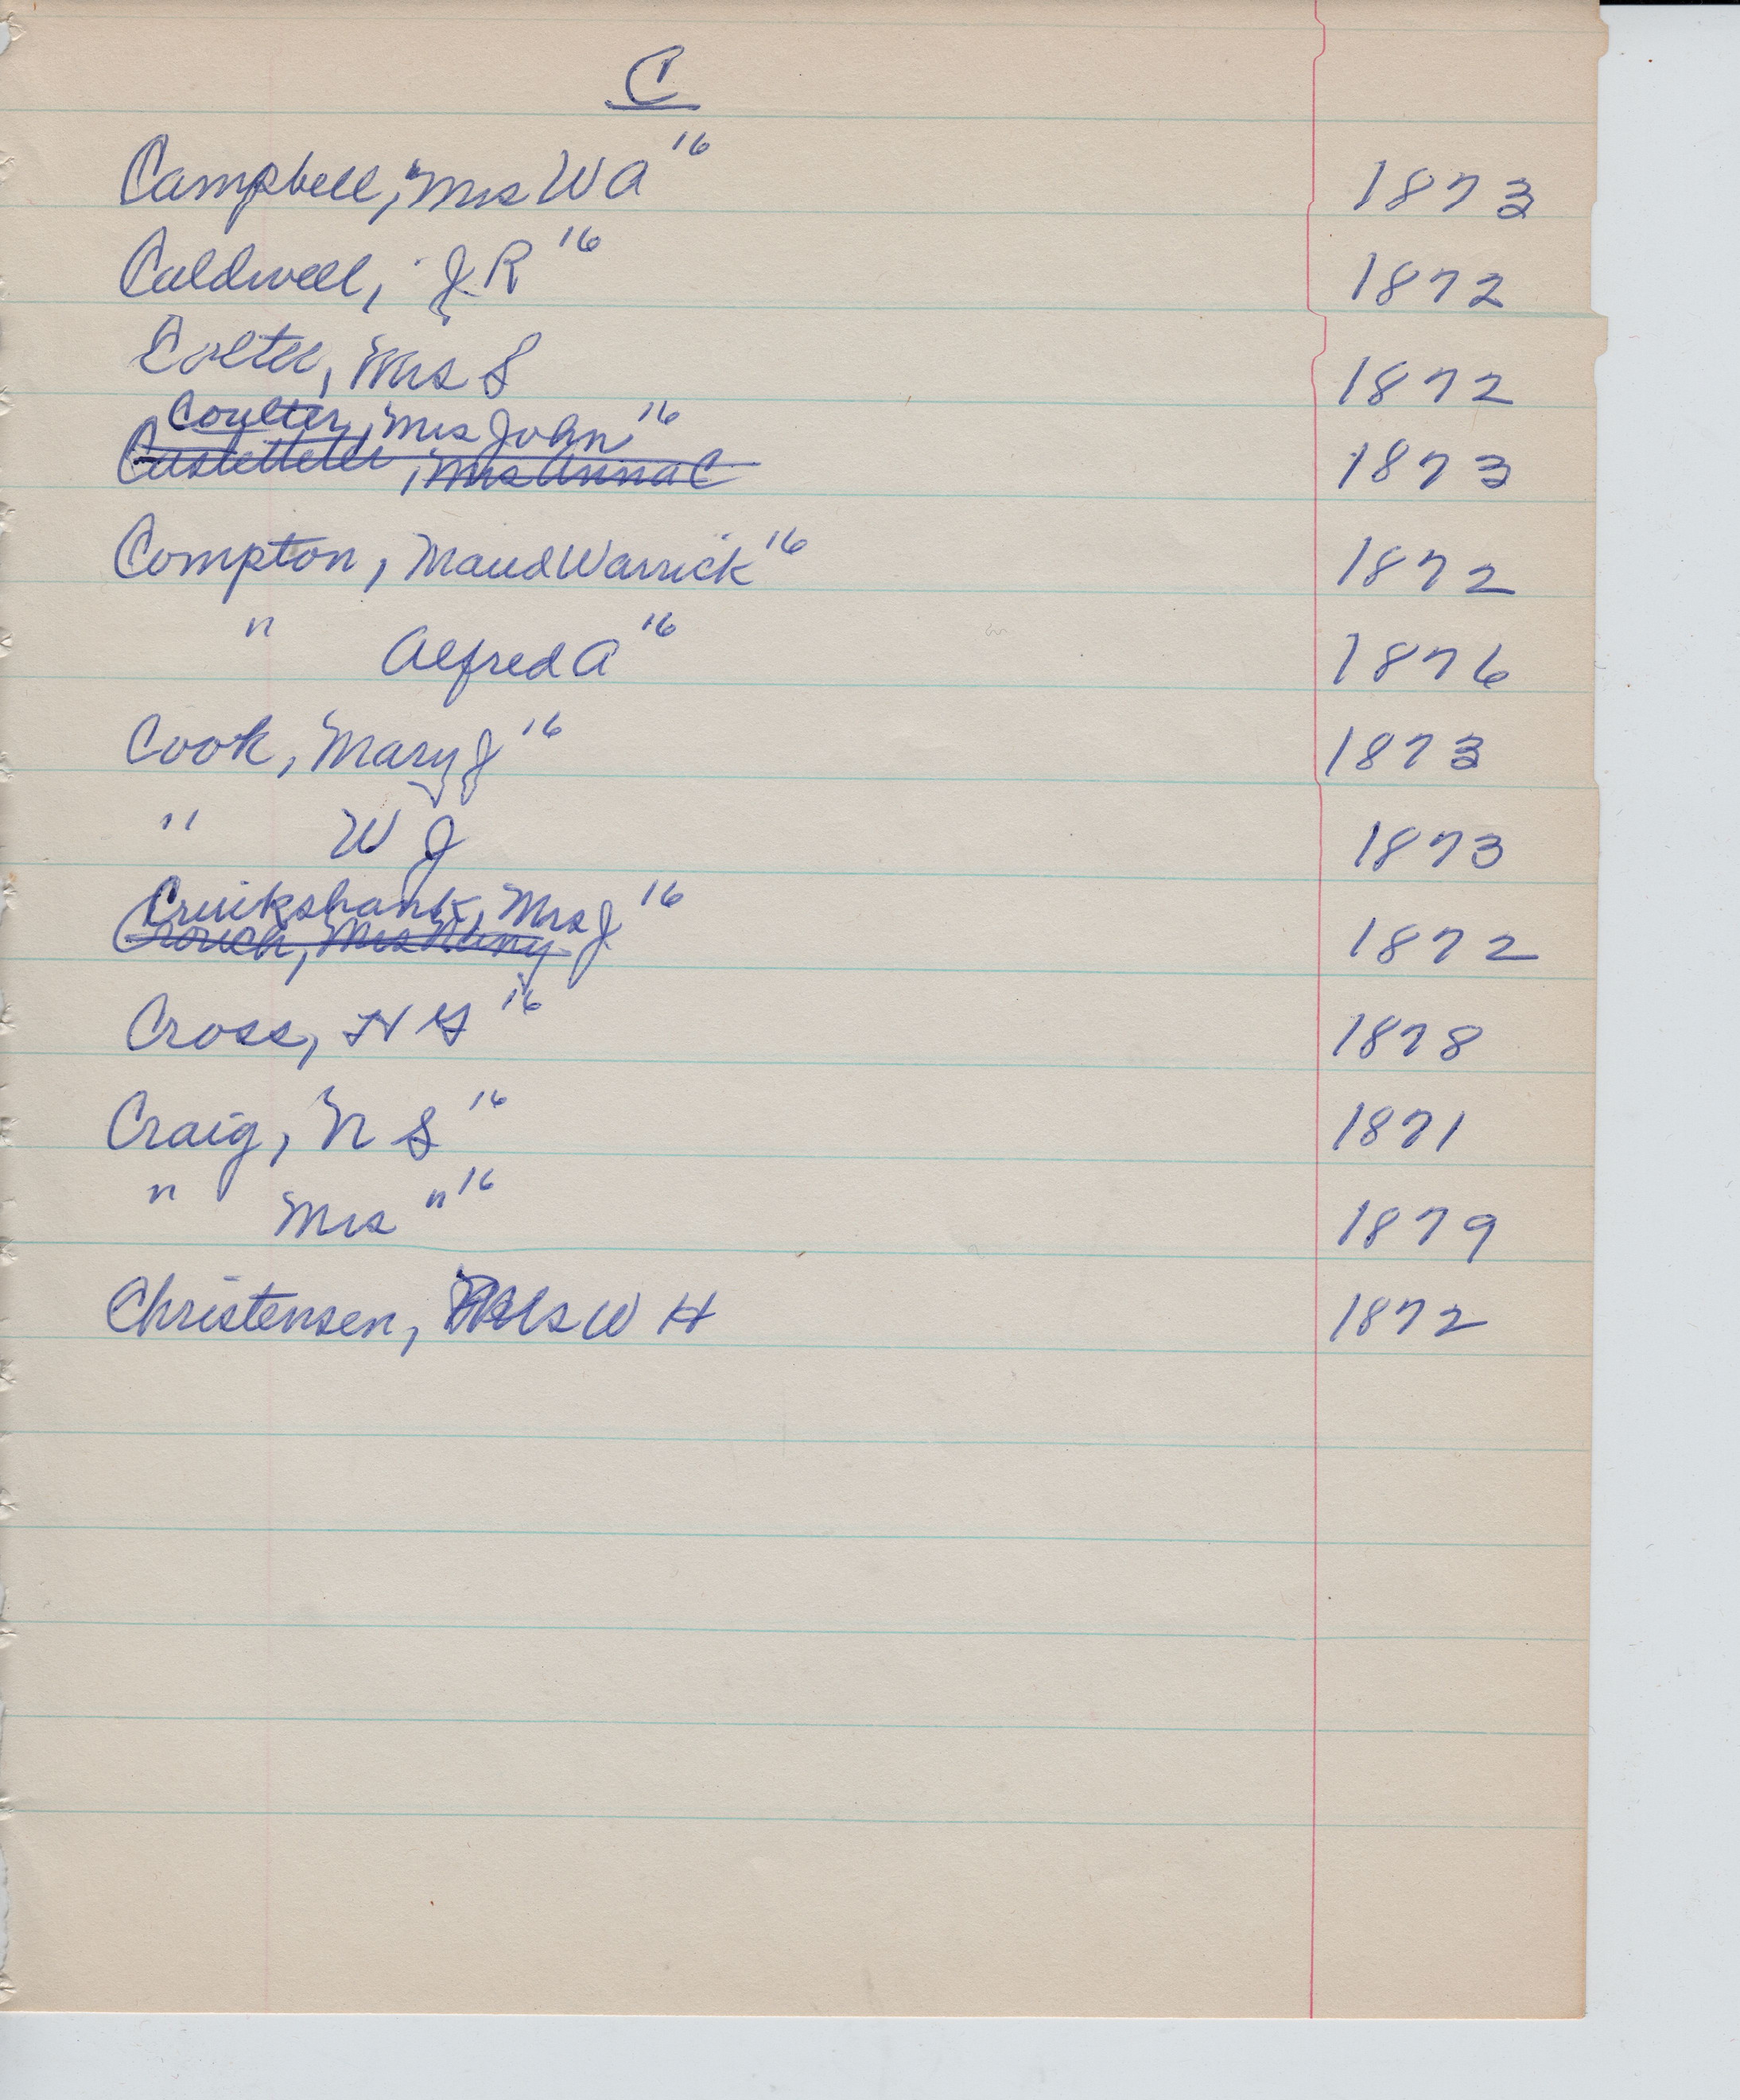 C
Campbell, Mrs W A 16 1873
Caldwell, J. R 16 1872
Colter, Mrs S 1872
Coulter, Mrs John 16
Castetter, Mrs Anna C 1873
Compton, Maud Warrick 16 1872
" Alfred A 16 1876
Cook, Mary J 16 1873
" W J 1873
Cruikshank, Mrs J 16
Crouch, Mrs 1872
Cross, H G 16 1878
Craig, N S 16 1871
" Mrs " 16 1879
Christensen, Mrs W H 1872